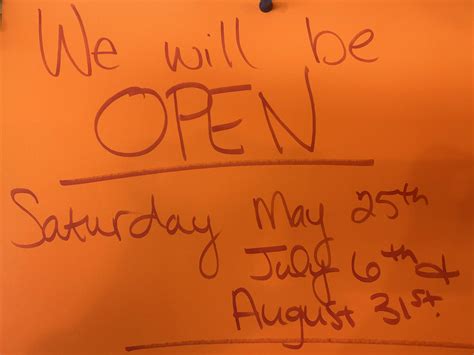 We will be
OPEN
Saturday May 25th
July 6th &
August 31st.